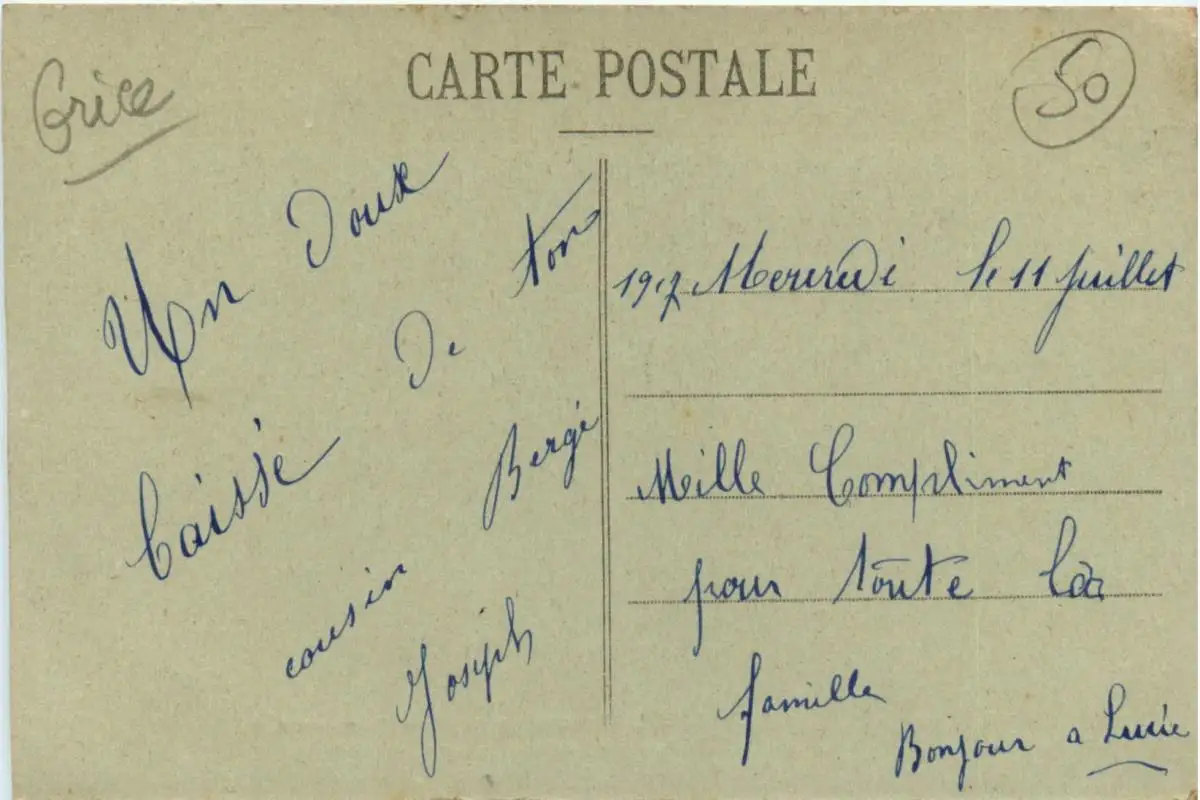 CARTE POSTALE
50
Un doux
baissé de ton
cousin Bergé
Joseph
1917 Mercredi le 11 juillet
Mille Compliment
pour toute la
famille
Bonjour a Lucie